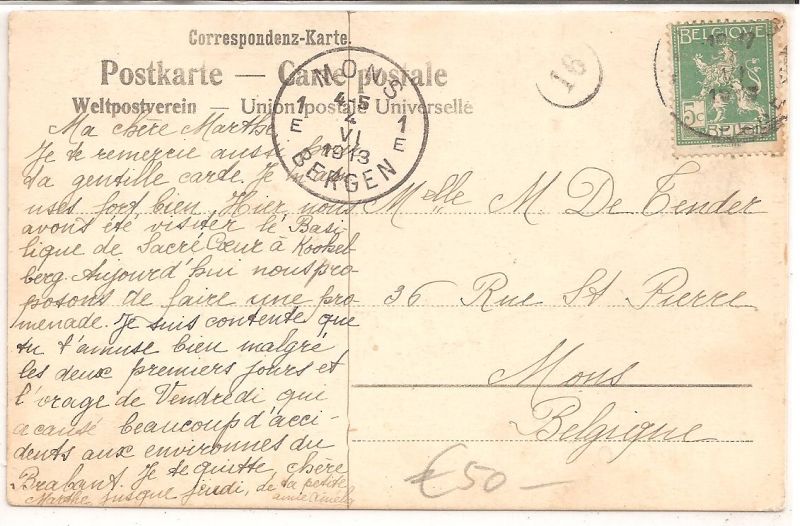 Correspondenz-Karte.
Postkarte — Carte postale
Weltpostverein — Union postale Universelle
MONS
4-5
4
VI
1913
1E
1E
BERGEN
16
BELGIQUE
5c
Ma chère Marthe
Je te remercie aussi pour
ta gentille carte. Je m'
uses fort bien. Hier, nous
avons été visiter le Basi-
lique de Sacré Cœur à Koekel
berg. Aujourd'hui nous pro-
posons de faire une pro
menade. Je suis contente que
tu t'amuse bien malgré
les deux premiers jours et
l'orage de Vendredi qui
a causé beaucoup d'acci-
dents aux environnes du
Brabant. Je te quitte, chère
Marthe jusque jeudi, de ta petite
amie
Melle M. De Tender
36 Rue St Pierre
Mons
Belgique
€50-